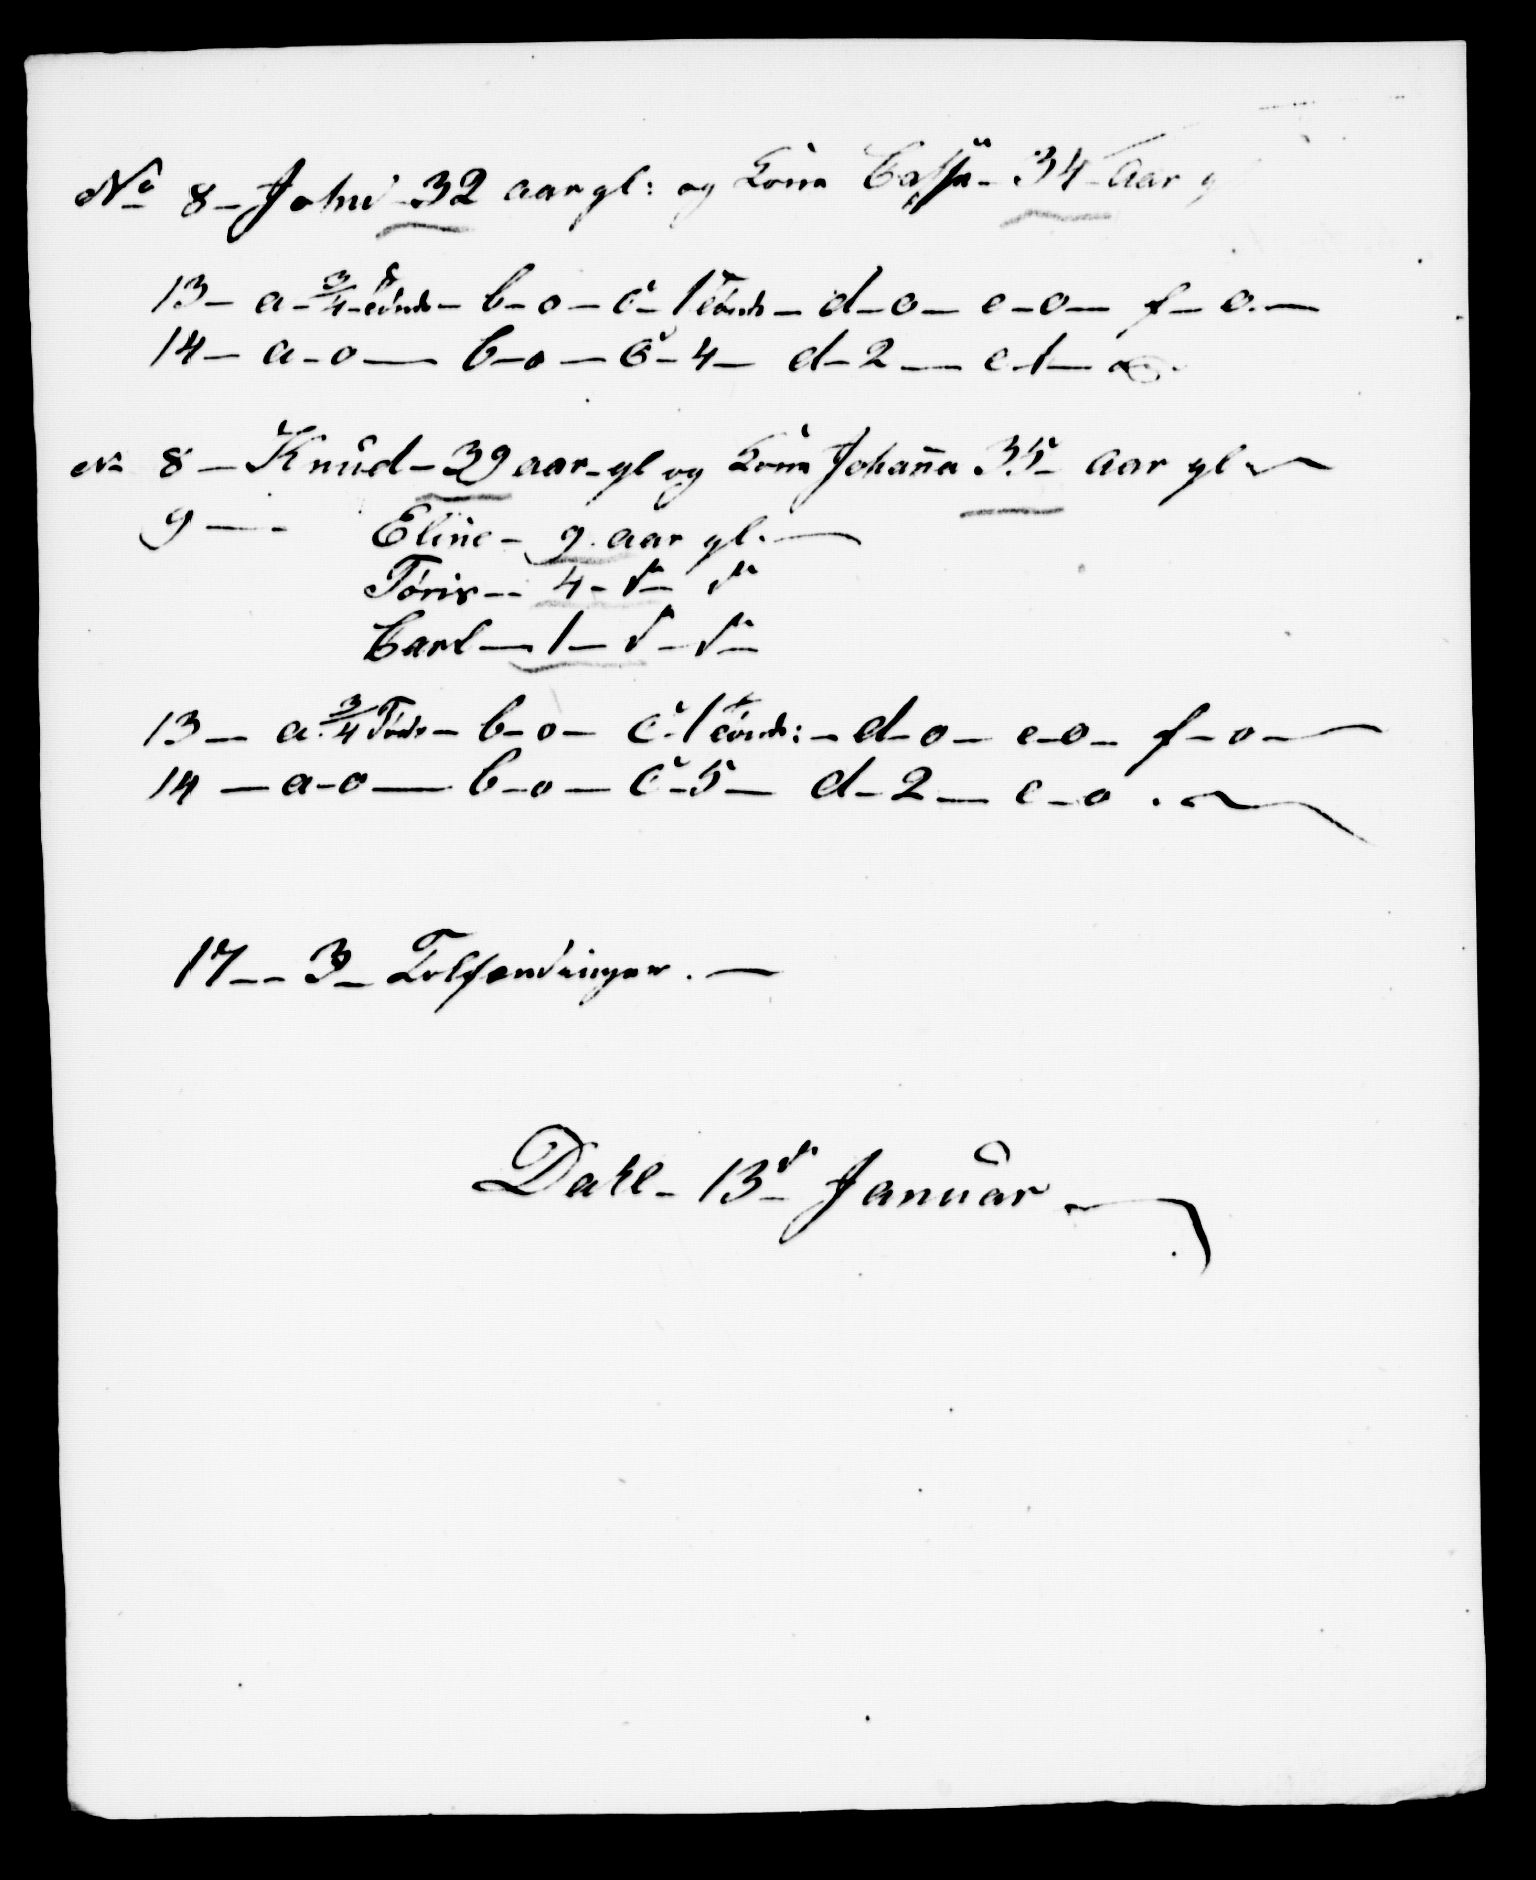 No 8 - John 32 aar gl: og Kona 34 - aar
13 - a - 3/4 Tønde - b - o - c - 1 Tønde - d - o - e - o - f - o. -
14 - a - o - b - o - c - 4 - d - 2 - e - 1 -
No 8 - Knud - 39 aar - gl og Kona Johanna 35 - aar gl
9 - Eline - 9 aar gl. -
Tóris - 4 - d - d
Carl - 1 - d - d -
13 - a. 3/4 Tønde - b - o - c - 1 Tønde: - d - o - e - o - f - o -
14 - a - o - b - o - c - 5 - d - 2 - e - o.
17 - 3 - Tolfændinger. -
Dahl - 13d Januar